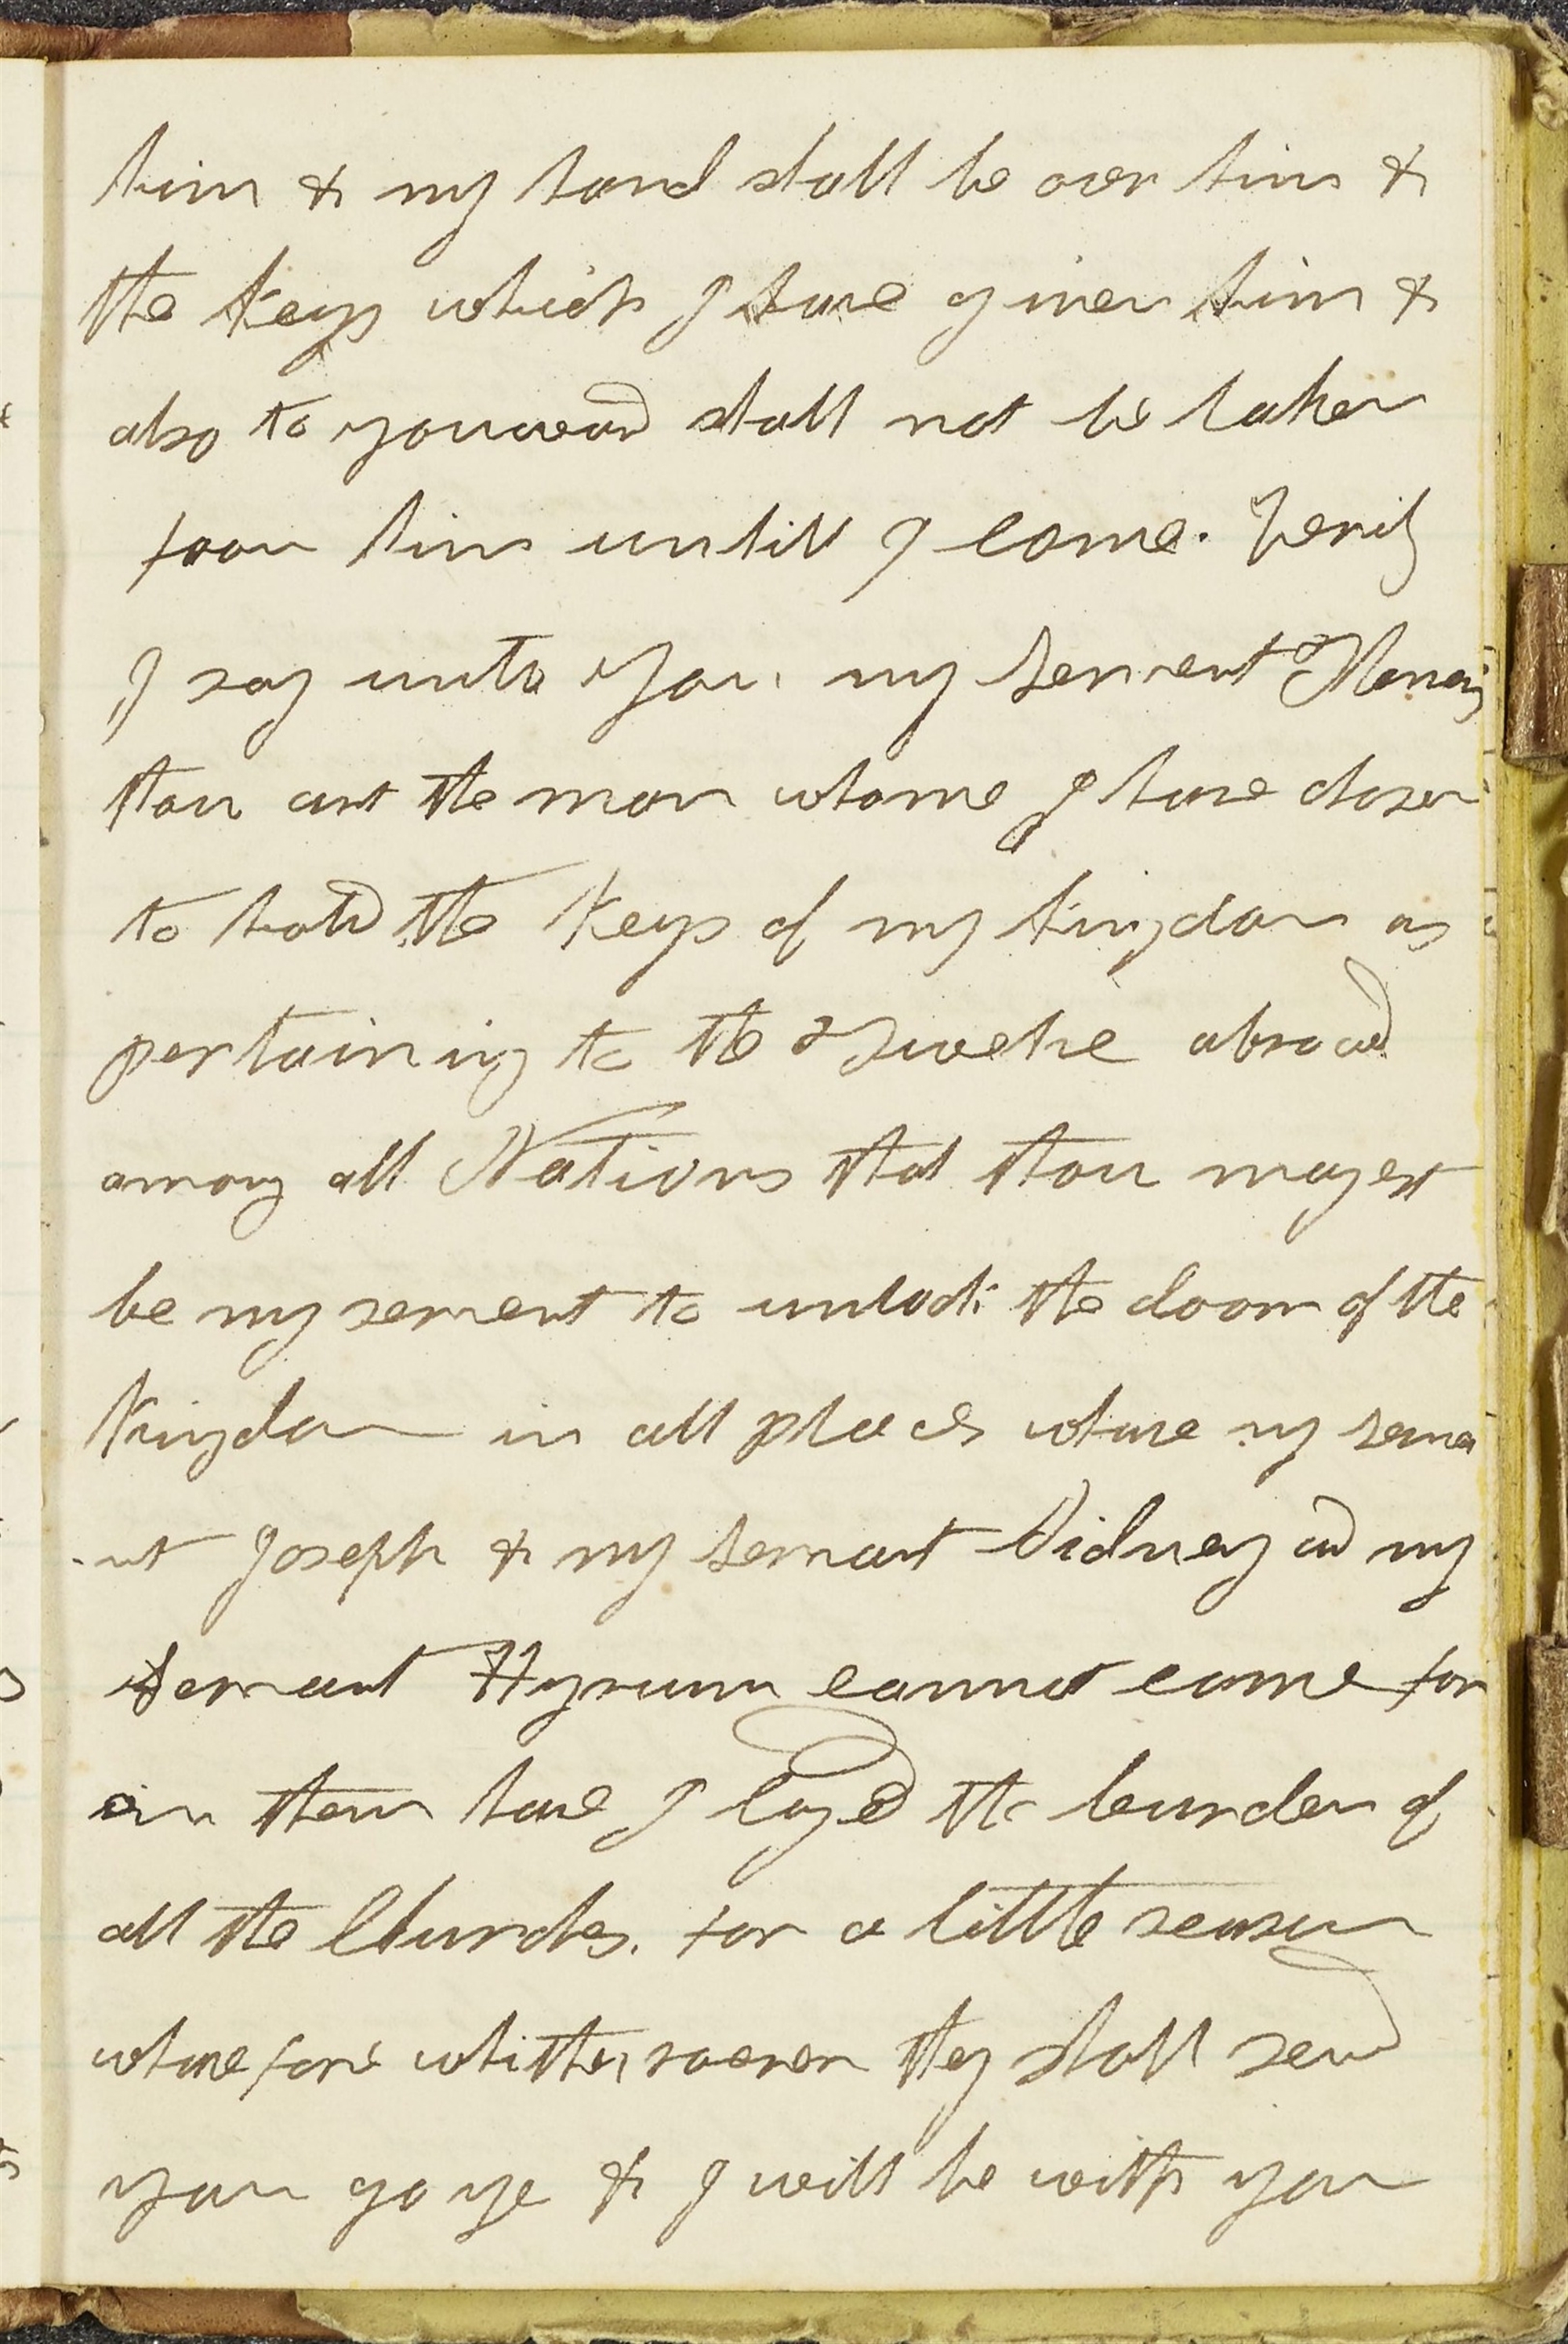 him & my hand shall be over him &
the Keys which I have given him &
also to youward shall not be taken
from him untill I come. Verily
I say unto you, my Servent Thomas
thou art the man whome I have chosen
to hold the Keys of my kingdom as
pertaining to the Twelve abroad
among all Nations that thou mayest
be my servent to unlock the door of the
Kingdom in all places whare my serva
-nt Joseph & my servant Sidney and my
Servant Hyrum cannot come for
on them have I layed the burden of
all the Churches. for a little season
wharefore whithersoever they shall send
you go ye & I will be with you